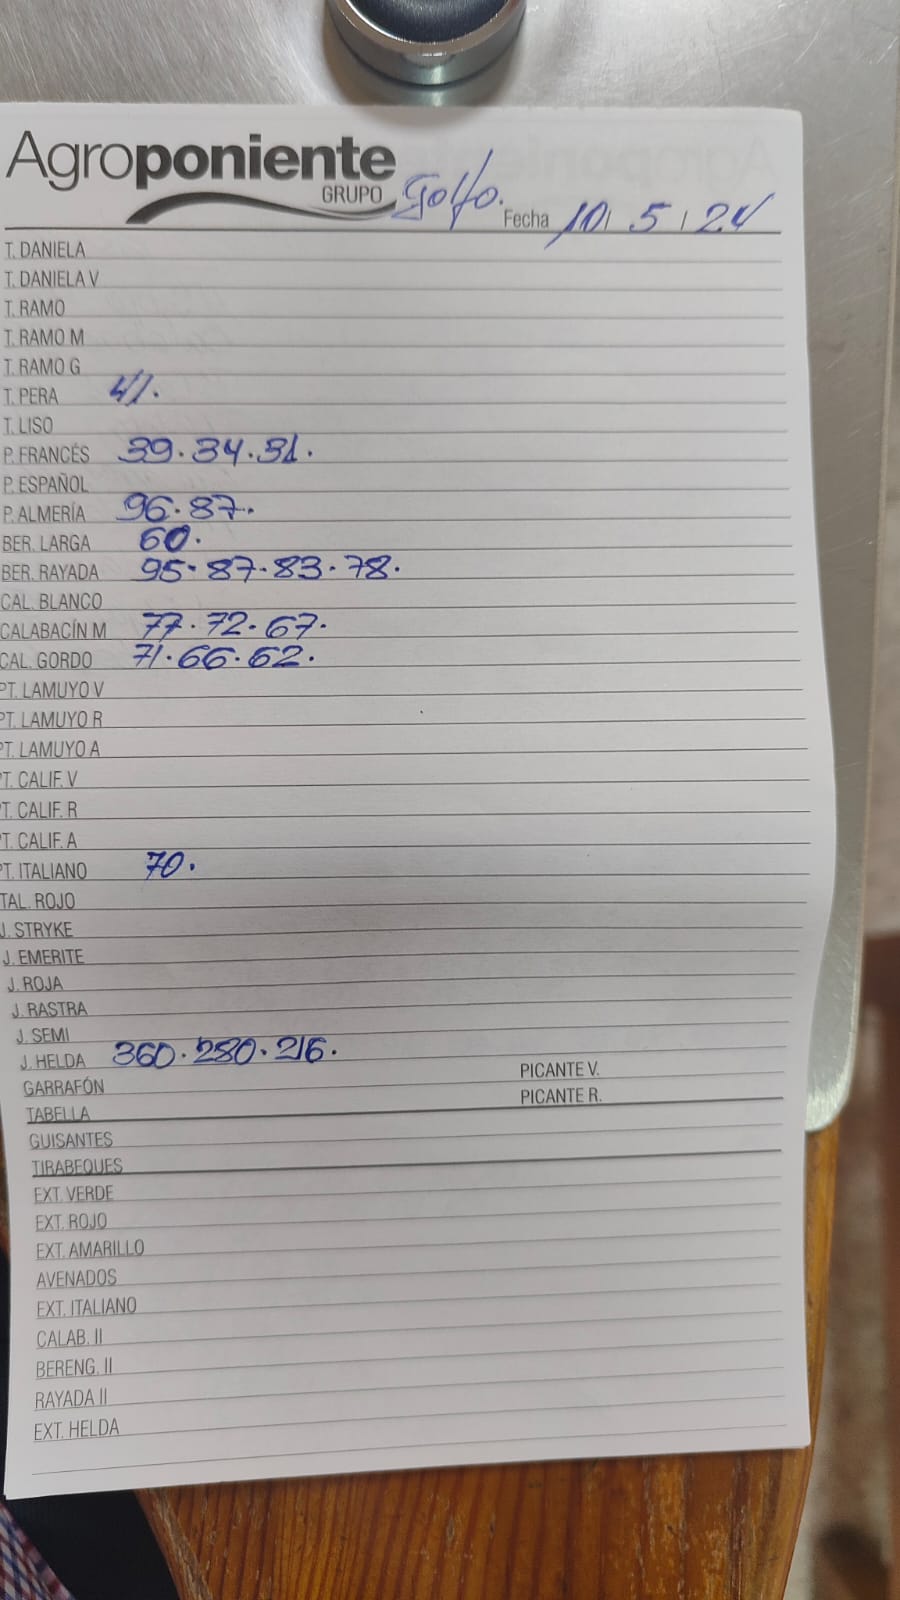 Agroponiente
GRUPO Golfo. Fecha 10 / 5 / 24
T. DANIELA
T. DANIELA V
T. RAMO
T. RAMO M
T. RAMO G
T. PERA 41.
T. LISO
P. FRANCÉS 39.34.31.
P. ESPAÑOL
P. ALMERÍA 96.87.
BER. LARGA 60.
BER. RAYADA 95.87.83.78.
CAL. BLANCO
CALABACÍN M 77.72.67.
CAL. GORDO 71.66.62.
PT. LAMUYO V
PT. LAMUYO R
PT. LAMUYO A
PT. CALIF. V
PT. CALIF. R
PT. CALIF. A
PT. ITALIANO 70.
TAL. ROJO
J. STRYKE
J. EMERITE
J. ROJA
J. RASTRA
J. SEMI
J. HELDA 360.280.216.
PICANTE V.
GARRAFÓN
PICANTE R.
TABELLA
GUISANTES
TIRABEQUES
EXT. VERDE
EXT. ROJO
EXT. AMARILLO
AVENADOS
EXT. ITALIANO
CALAB. II
BERENG. II
RAYADA II
EXT. HELDA